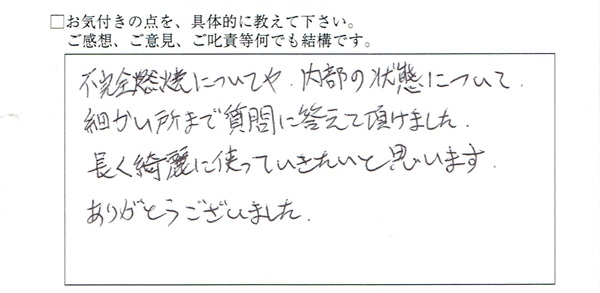 □お気付きの点を、具体的に教えて下さい。
ご感想、ご意見、ご叱責等何でも結構です。
不完全燃焼についてや、内部の状態について、
細かい所まで質問に答えて頂けました。
長く綺麗に使っていきたいと思います。
ありがとうございました。